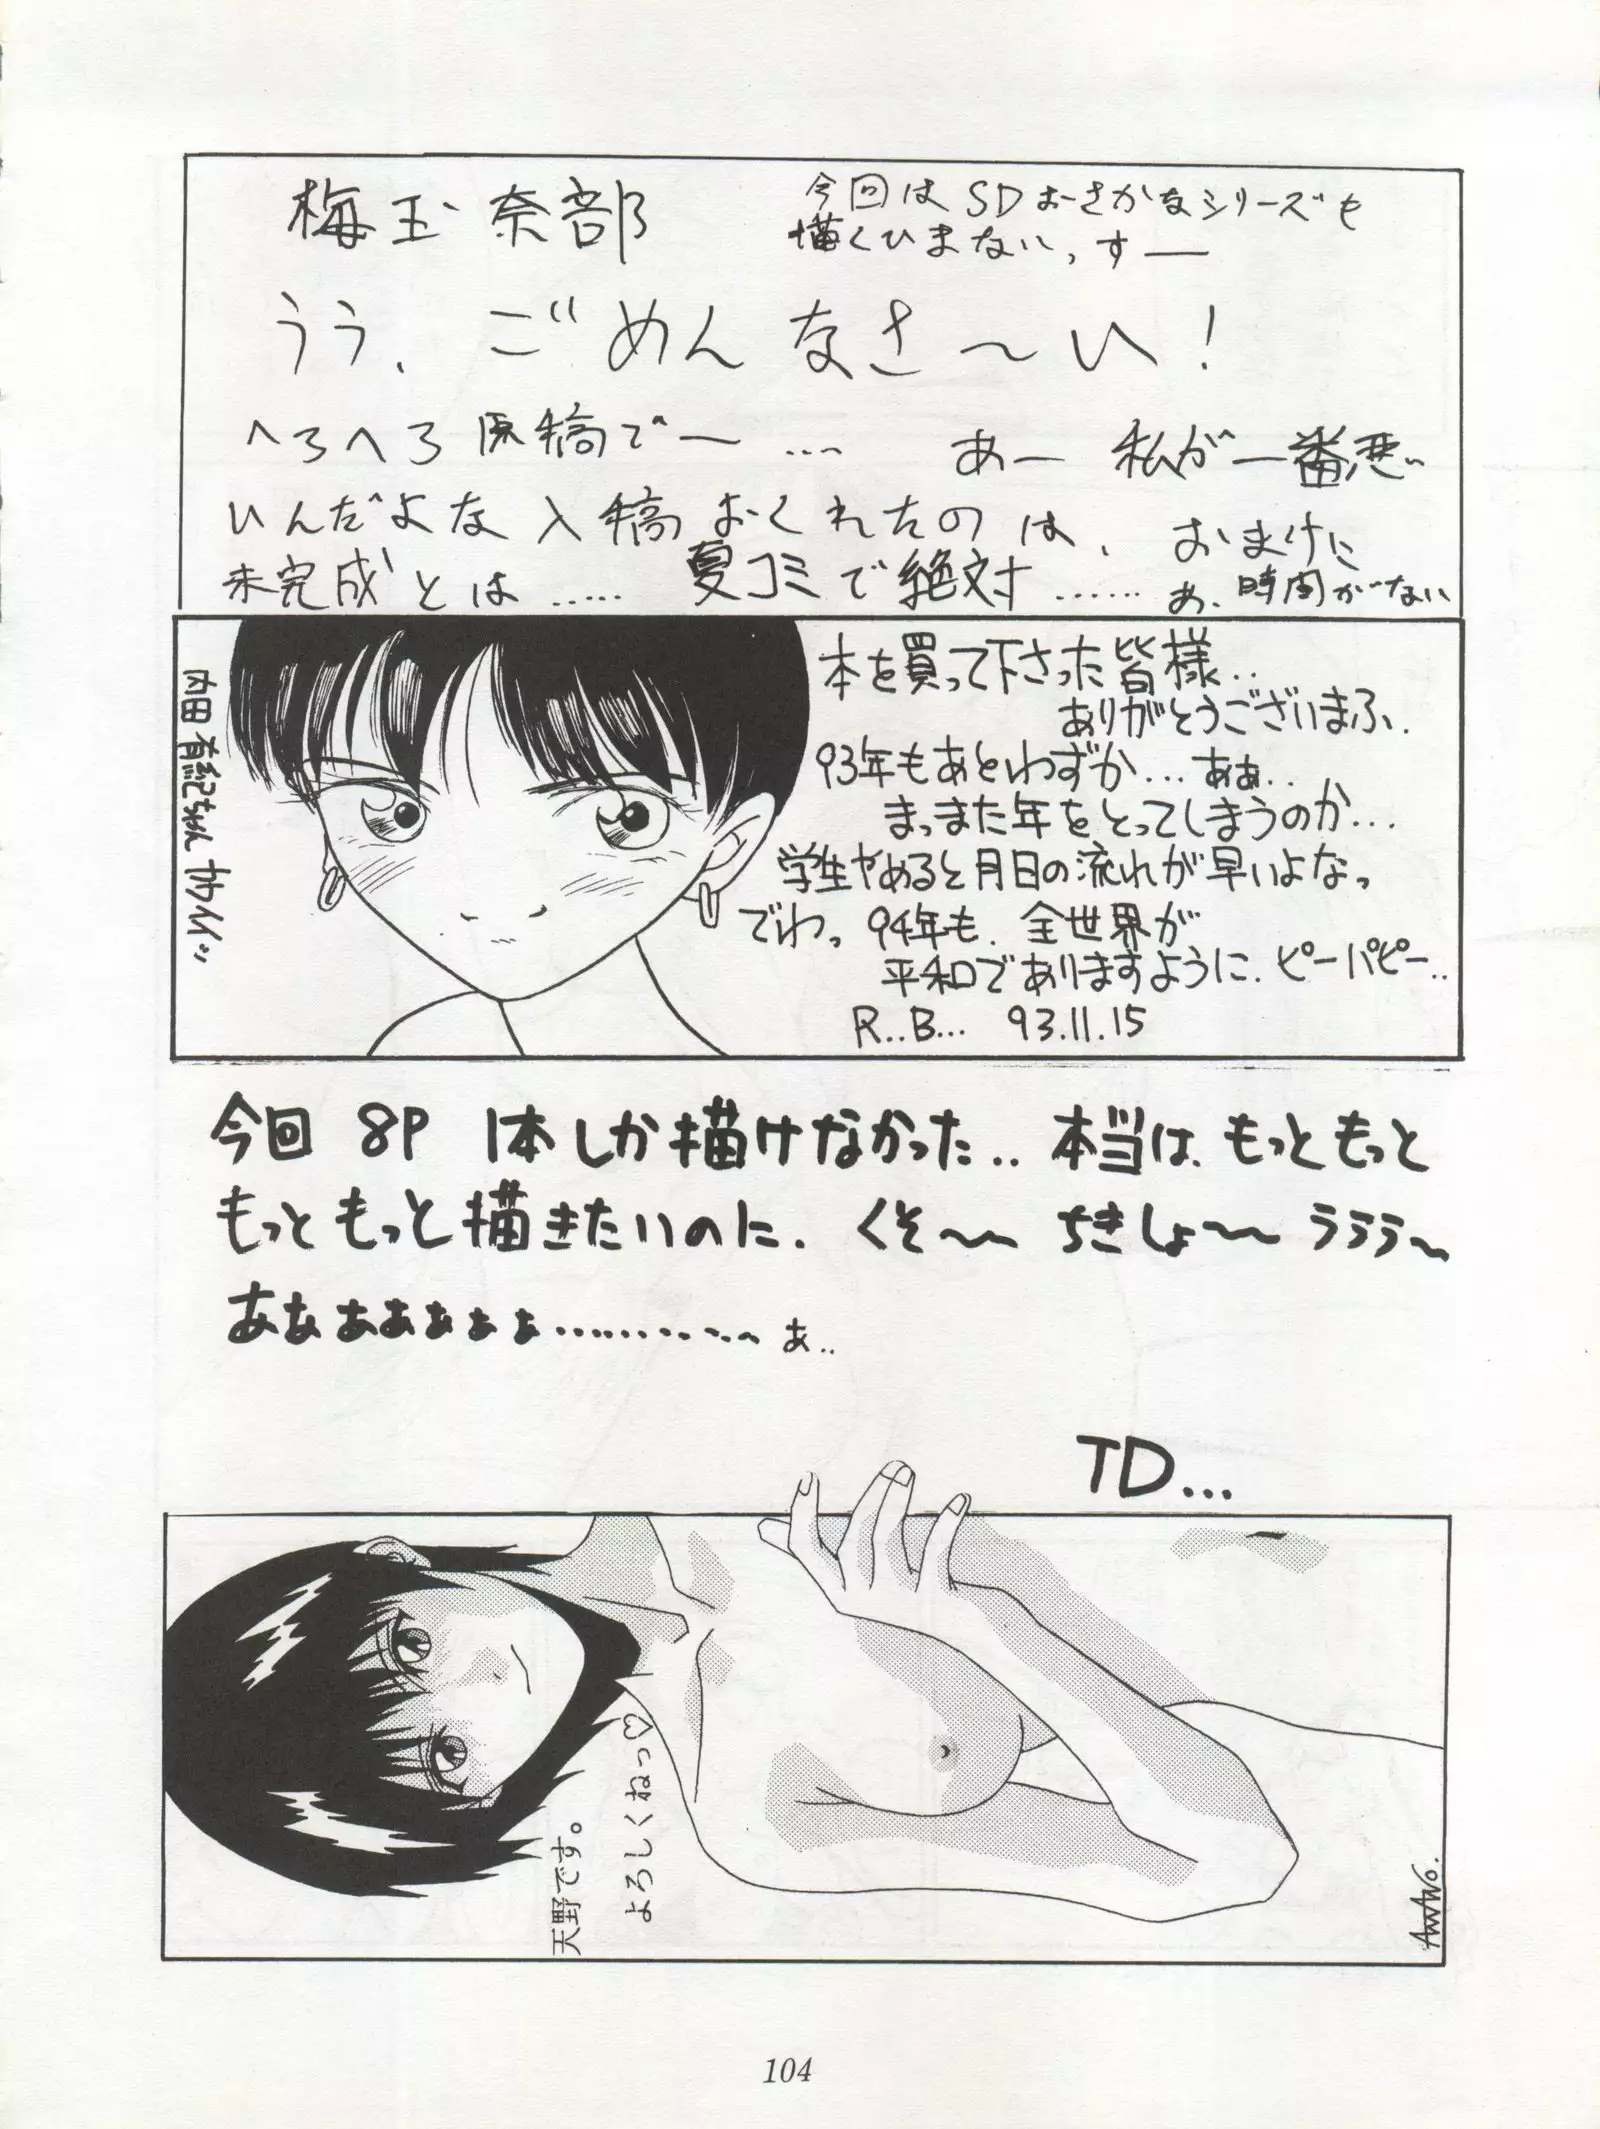 梅玉奈部
今回はSDおさかなシリーズも
描くひまないっすー
うう、ごめんなさ〜い!
へろへろ原稿でー…. あー 私が一番悪
いんだよな入稿おくれたのは、おまけに
未完成とは….. 夏コミで絶対…… あ、時間がない
内田有紀ちゃん カワイイ
本を買って下さった皆様..
ありがとうございまふ.
93年もあとわずか... ああ..
まったまた年をとってしまうのか...
学生やめると月日の流れが早いよなっ
でわっ 94年も、全世界が
平和でありますように. ピーパピー..
R..B... 93.11.15
今回 8P 1本しか描けなかった.. 本当は、もっともっと
もっともっと描きたいのに. くそ〜 ちきしょ〜 ううう〜
あああああああ………… あ..
TD...
天野です。
よろしくねっ♡
AMANO.
104